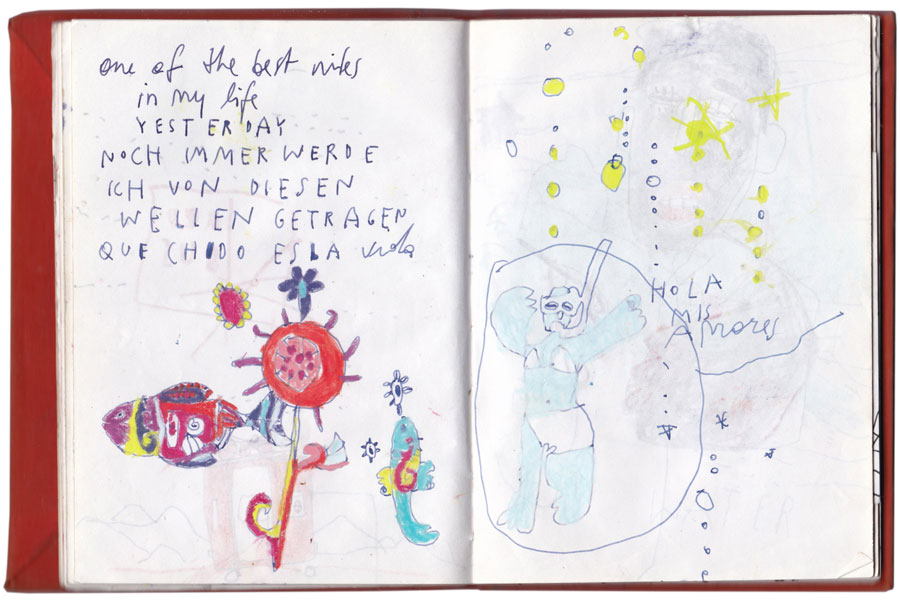 one of the best nites
in my life
YESTERDAY
NOCH IMMER WERDE
ICH VON DIESEN
WELLEN GETRAGEN
QUE CHIDO ES LA vida
HOLA
MIS
Amores